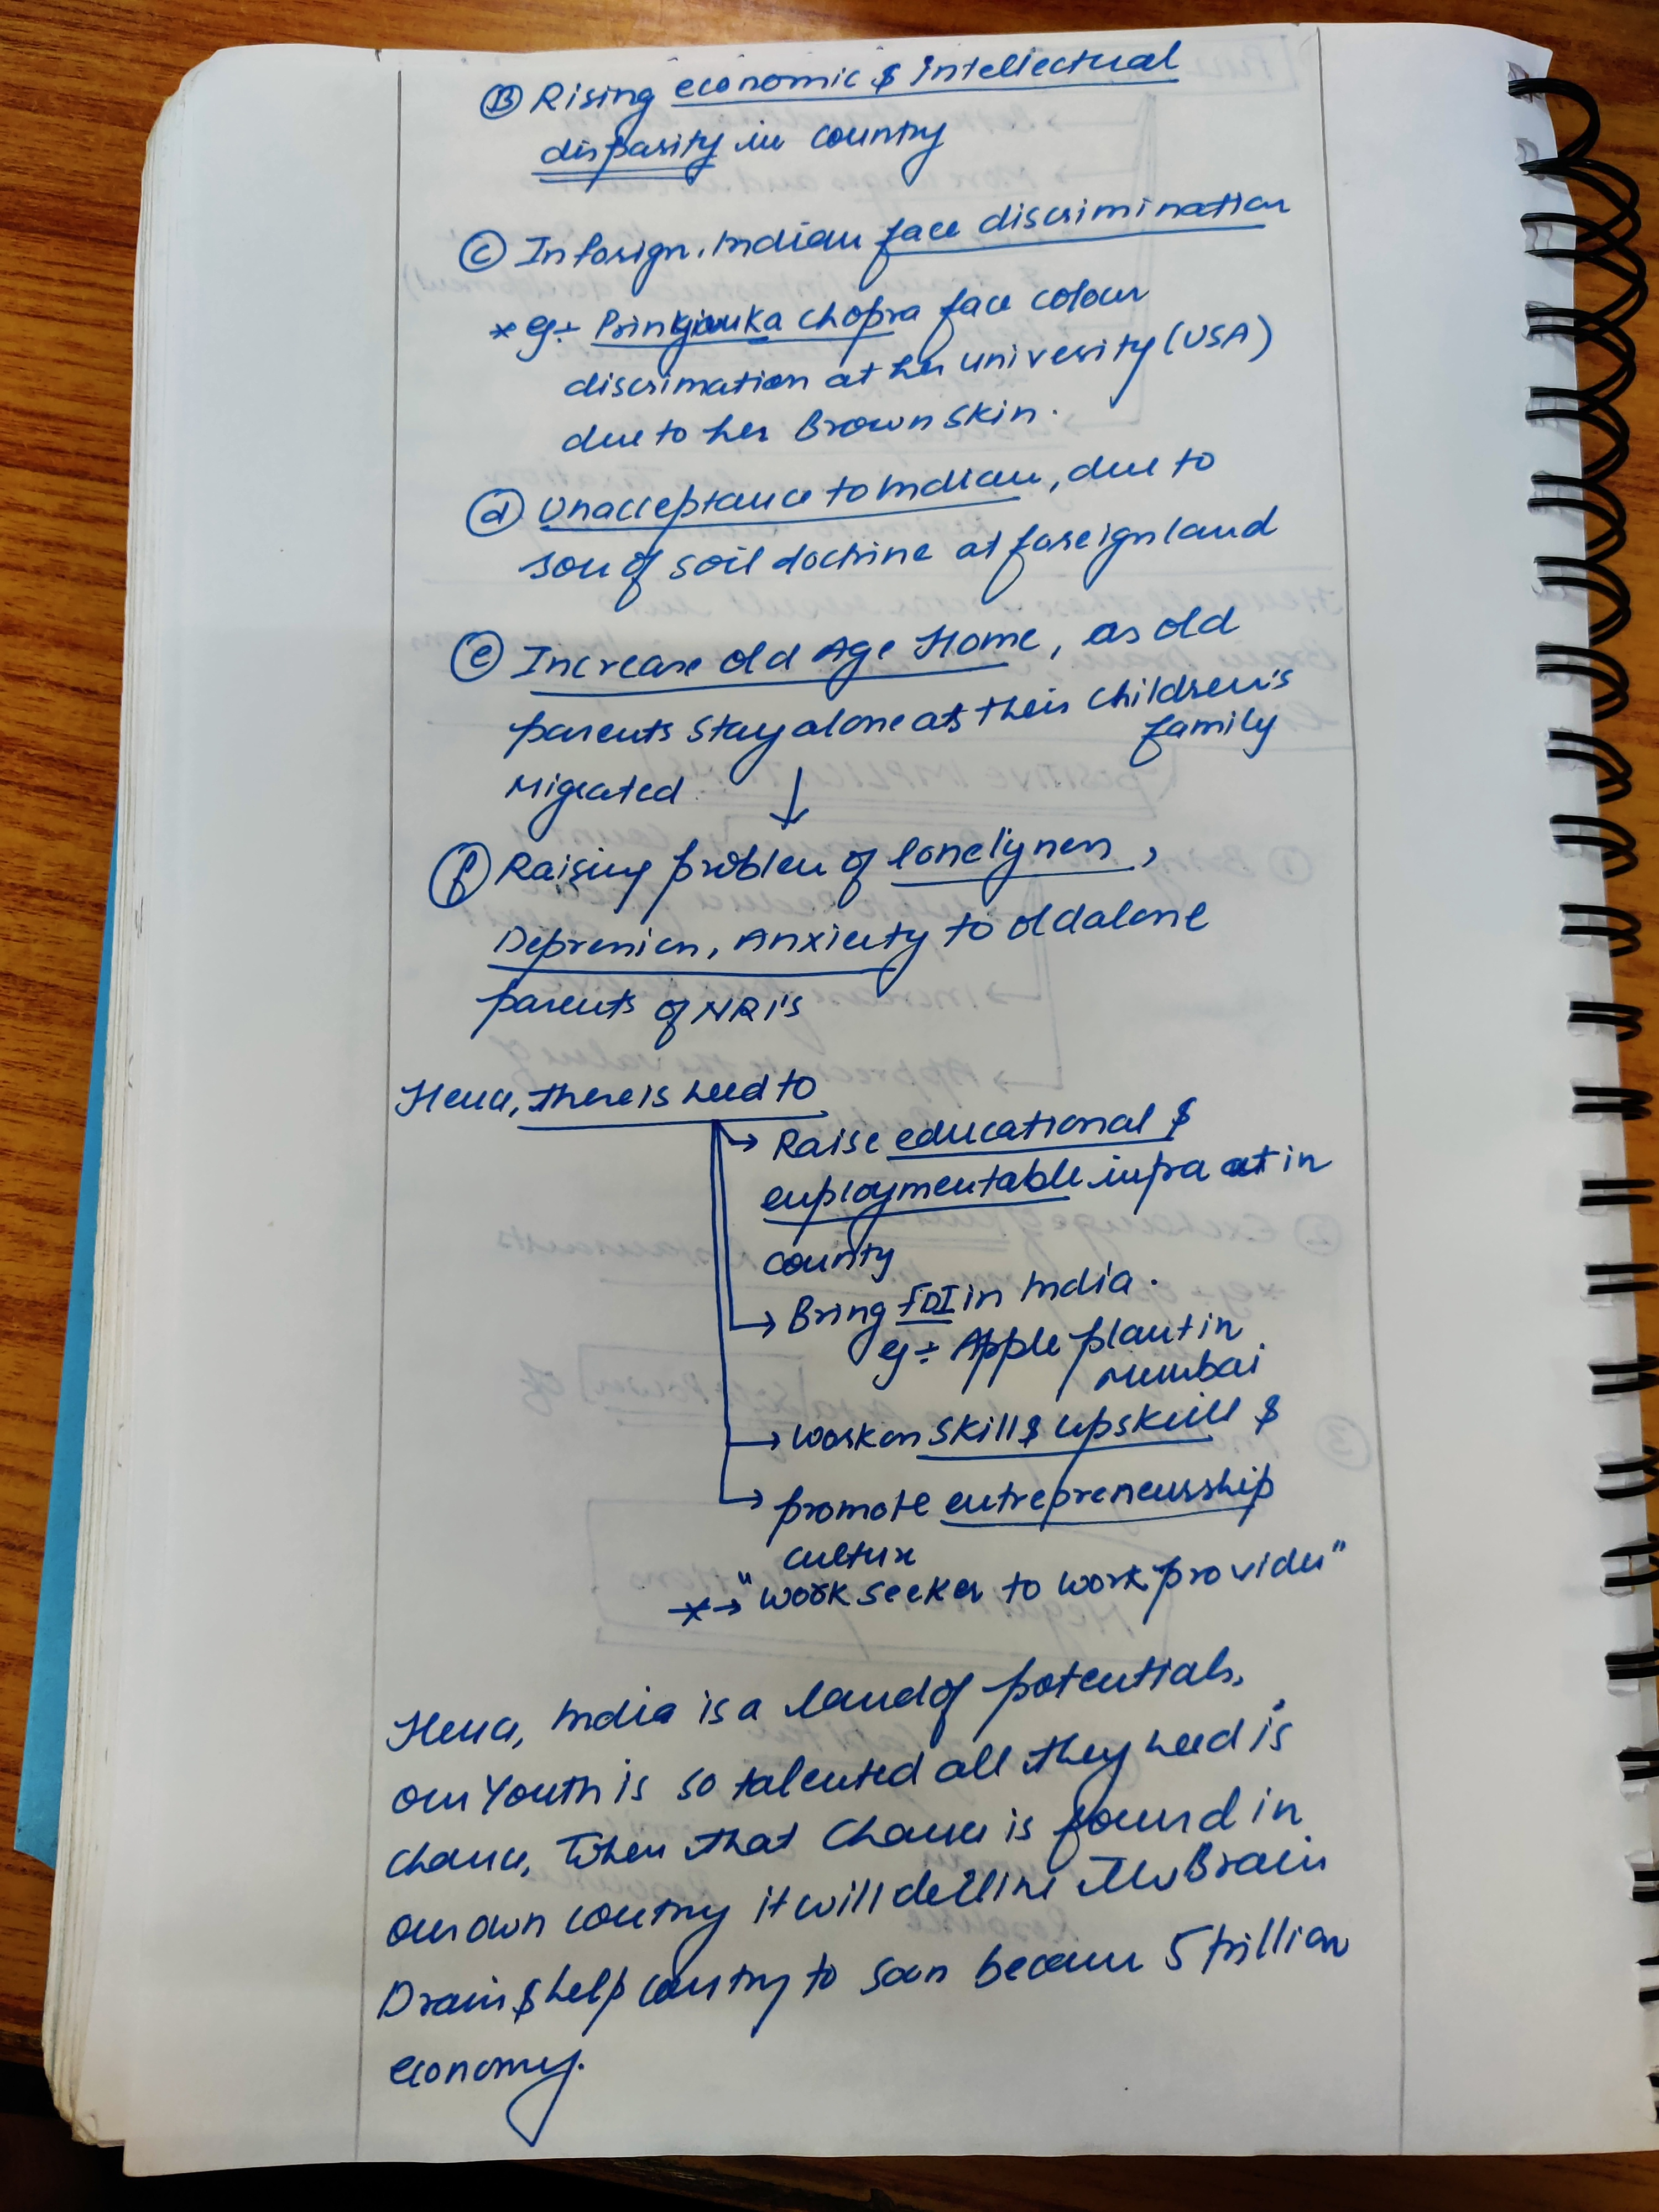 (B) Rising economic & Intellectual
disparity in country
(C) In forign, Indian face discrimination
* eg:- Prinkjanka chopra face colour
discrimation at her univesity (USA)
due to her Brown Skin.
(d) Unacceptance to Indian, due to
son of soil doctrine at foreign land
(e) Increase old Age Home, as old
parents stay alone as their children's
family
Migrated ↓
(f) Raising problem of lonelyness,
Depression, Anxiety to old alone
parents of NRI's
Hence, there is need to
→ Raise educational &
employmentable infra in
county
→ Bring FDI in India.
eg:- Apple plant in
Mumbai
→ work on skill & upskill &
→ promote entrepreneurship
culture
*→ "work seeker to work provider"
Hence, India is a land of potentials,
our Youth is so talented all they need is
chance, When that Chance is found in
our own contry it will decline the Brain
Drain & help contry to soon become 5 trillion
economy.